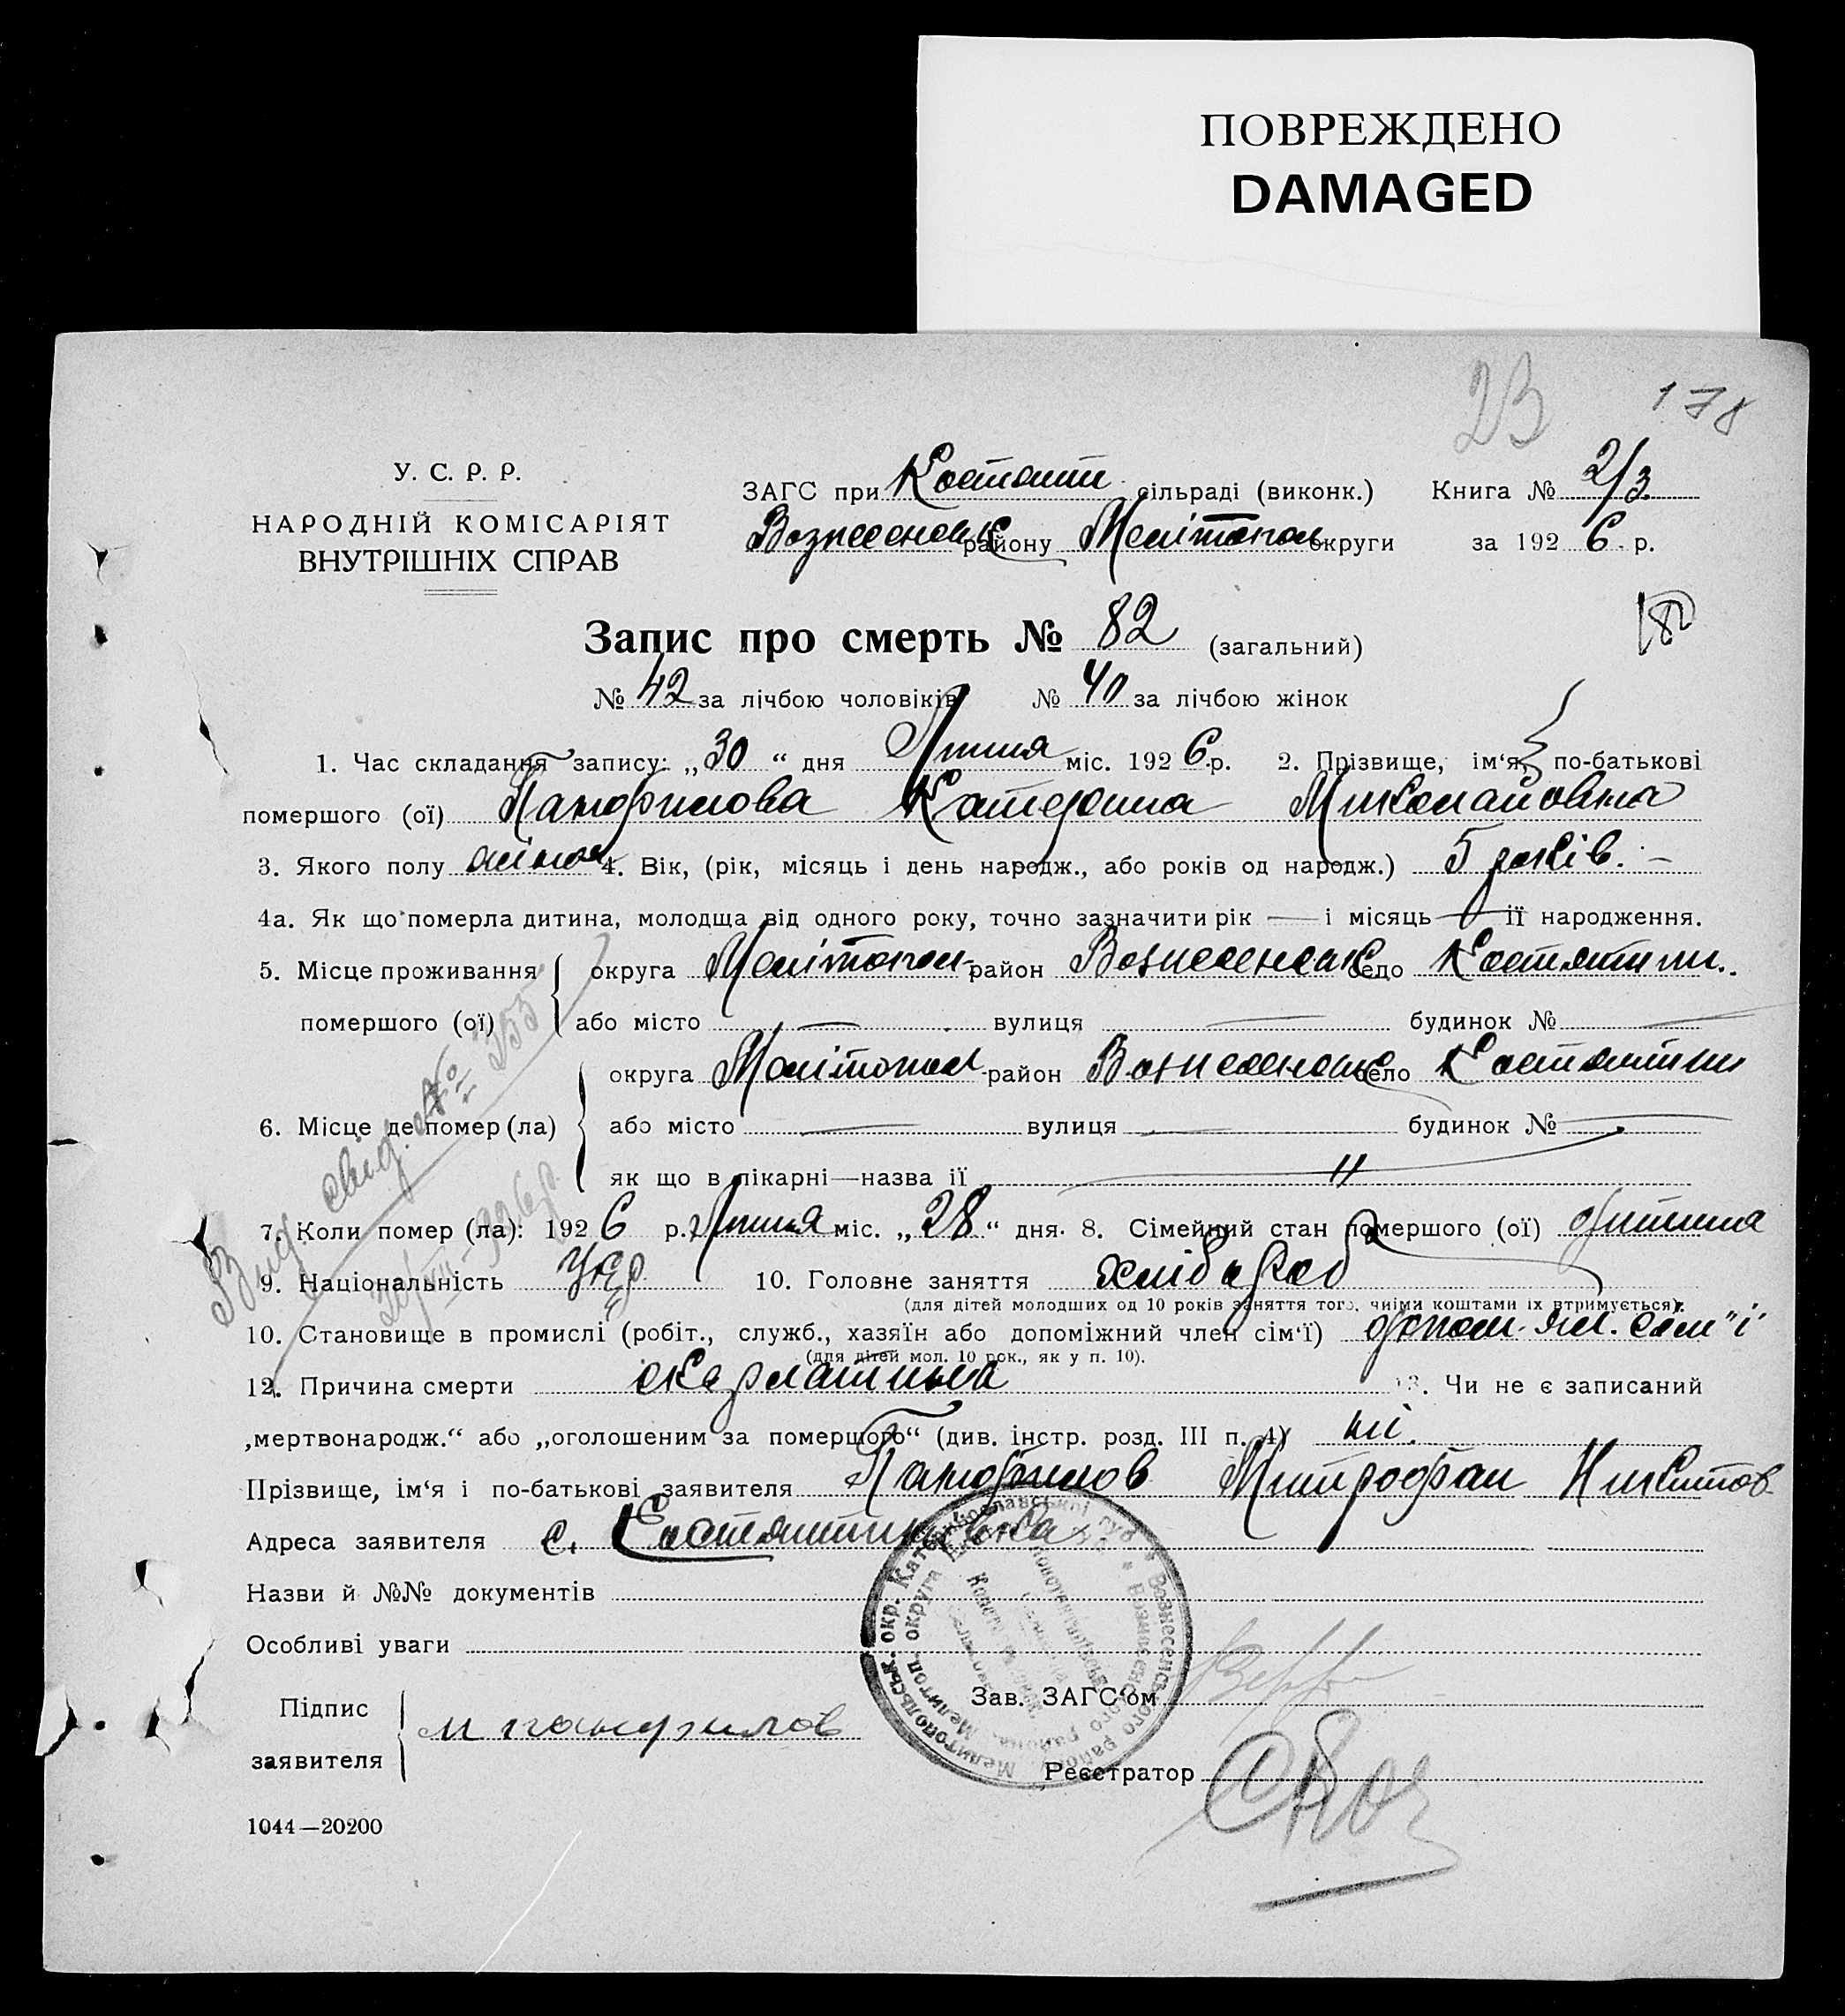 ПОВРЕЖДЕНО
DAMAGED
23 178
У. С. Р. Р.
НАРОДНІЙ КОМІСАРІЯТ
ВНУТРІШНІХ СПРАВ
ЗАГС при Костянти сільраді (виконк.) Книга № 2/3
Вознесенськ району Мелітопол округи за 1926 р.
Запис про смерть № 82 (загальний)
№ 42 за лічбою чоловіків № 40 за лічбою жінок
1. Час складання запису: „30“ дня Липня міс. 1926 р. 2. Прізвище, ім‘я, по-батькові
помершого (ої) Панфилова Катерина Миколаиовна
3. Якого полу жіноч 4. Вік, (рік, місяць і день народж., або років од народж.) 5 років. —
4а. Як що померла дитина, молодща від одного року, точно зазначити рік — і місяць — її народження.
5. Місце проживання округа Мелітопол- район Вознесенськ село Костянтин.
помершого (ої) або місто — вулиця — будинок № —
округа Мелітопол- район Вознесенськ село Костянтин
6. Місце де помер (ла) або місто — вулиця — будинок № —
як що в лікарні—назва її — „ —
7. Коли помер (ла): 1926 р. Липня міс. „28“ дня. 8. Сімейний стан помершого (ої) дитина
9. Національність Укр 10. Головне заняття хлібороб
(для дітей молодших од 10 років заняття того, чиїми коштами їх втримується).
10. Становище в промислі (робіт., служб., хазяїн або допоміжний член сім‘ї) допом. чл. сем"ї
(для дітей мол. 10 рок., як у п. 10).
12. Причина смерти скарлатина 13. Чи не є записаний
„мертвонародж.“ або „оголошеним за помершого“ (див. інстр. розд. III п. 4) ні.
Прізвище, ім‘я і по-батькові заявителя Панфилов Митрофан Никитов
Адреса заявителя с. Костянтиновка
Назви й №№ документів
Особливі уваги
Зав. ЗАГС‘ом
Підпис
заявителя м панфилов
Реєстратор
1044—20200
Вид. свид. № 355